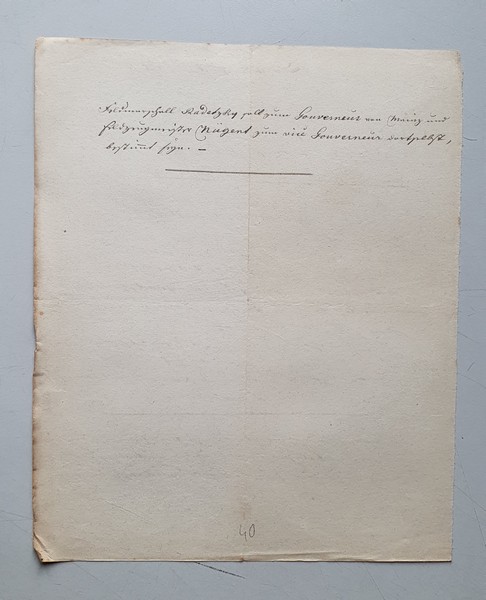 Feldmarschall Radetzky soll zum Gouverneur von Mainz und
Feldzeugmeister Nugent zum vice Gouverneur dortselbst,
bestimmt seyn. —
40